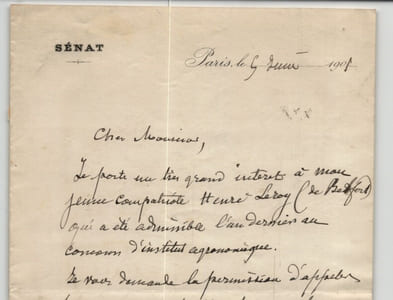 SÉNAT
Paris, le 5 juin 1901
Cher Monsieur,
Je porte un très grand intérêt à mon
jeune compatriote Henri Leroy (de Belfort)
qui a été admissible l'an dernier au
concours d'institut agronomique.
Je vous demande la permission d'appeler